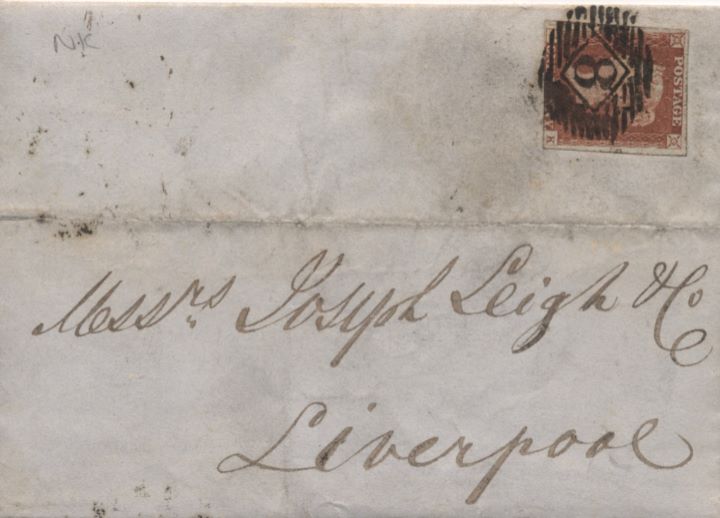 N.K
8
POSTAGE
K
Messrs Joseph Leigh & Co
Liverpool